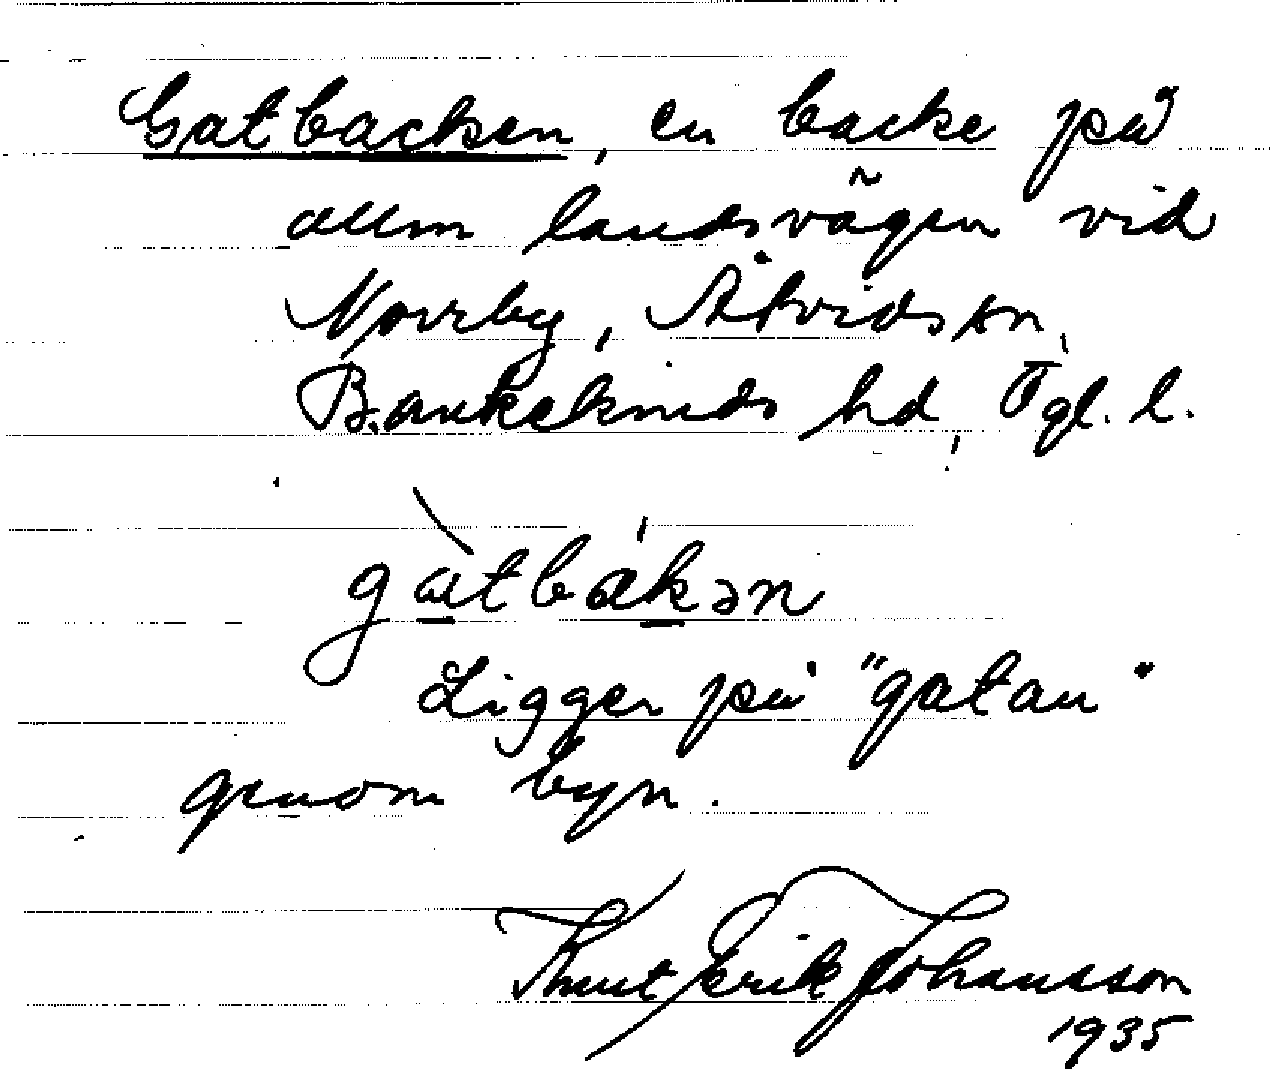 Gatbacken, en backe på
allm landsvägen vid
Norrby, Åtvids sn,
Bankekinds hd, Ögl. l.
gɑtbɑkən
Ligger på "gatan"
genom byn.
Knut Erik Johansson
1935